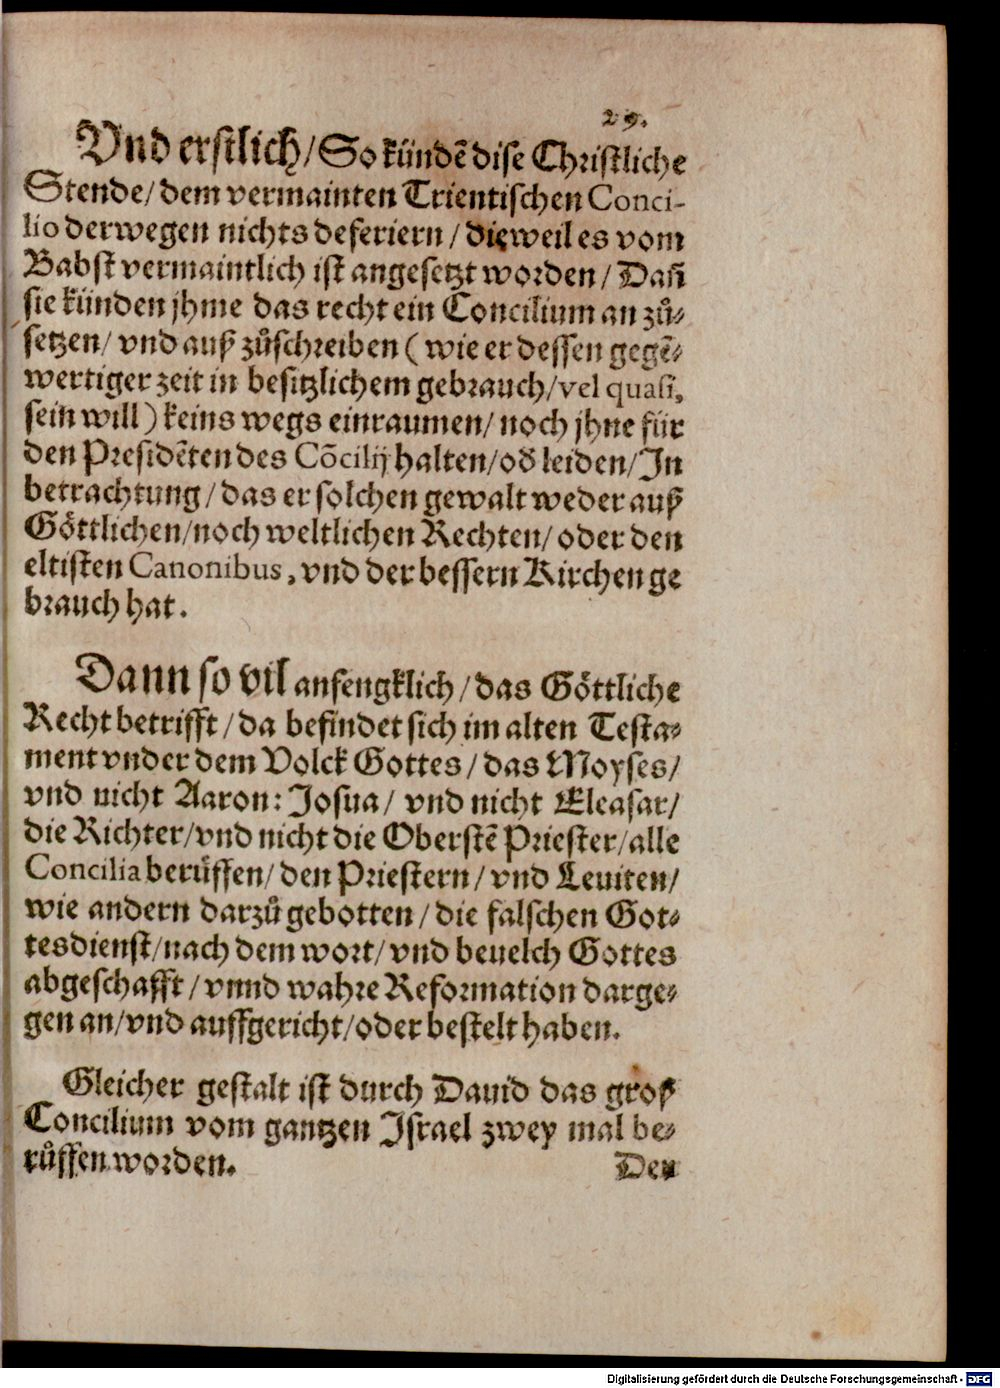 29.
Vnd erstlich/ So kündē dise Christliche
Stende/ dem vermainten Trientischen Conci-
lio derwegen nichts deferiern/ dieweil es vom
Babst vermaintlich ist angesetzt worden/ Dañ
sie künden jhme das recht ein Concilium an zů-
setzen/ vnd auß zůschreiben ( wie er dessen gegē-
wertiger zeit in besitzlichem gebrauch/ vel quasi,
sein will ) keins wegs einraumen/ noch jhne für
den Presidēten des Cōcilij halten/ od leiden/ In
betrachtung/ das er solchen gewalt weder auß
Göttlichen/ noch weltlichen Rechten/ oder den
eltisten Canonibus, vnd der bessern Kirchen ge
brauch hat.
Dann so vil anfengklich/ das Göttliche
Recht betrifft/ da befindet sich im alten Testa-
ment vnder dem Volck Gottes/ das Moyses/
vnd nicht Aaron: Josua/ vnd nicht Eleasar/
die Richter/ vnd nicht die Oberstē Priester/ alle
Concilia berůffen/ den Priestern/ vnd Leuiten/
wie andern darzů gebotten/ die falschen Got-
tesdienst/ nach dem wort/ vnd beuelch Gottes
abgeschafft/ vnnd wahre Reformation darge-
gen an/ vnd auffgericht/ oder bestelt haben.
Gleicher gestalt ist durch Dauid das groß
Concilium vom gantzen Israel zwey mal be-
růffen worden.
Den
Digitalisierung gefördert durch die Deutsche Forschungsgemeinschaft - DFG